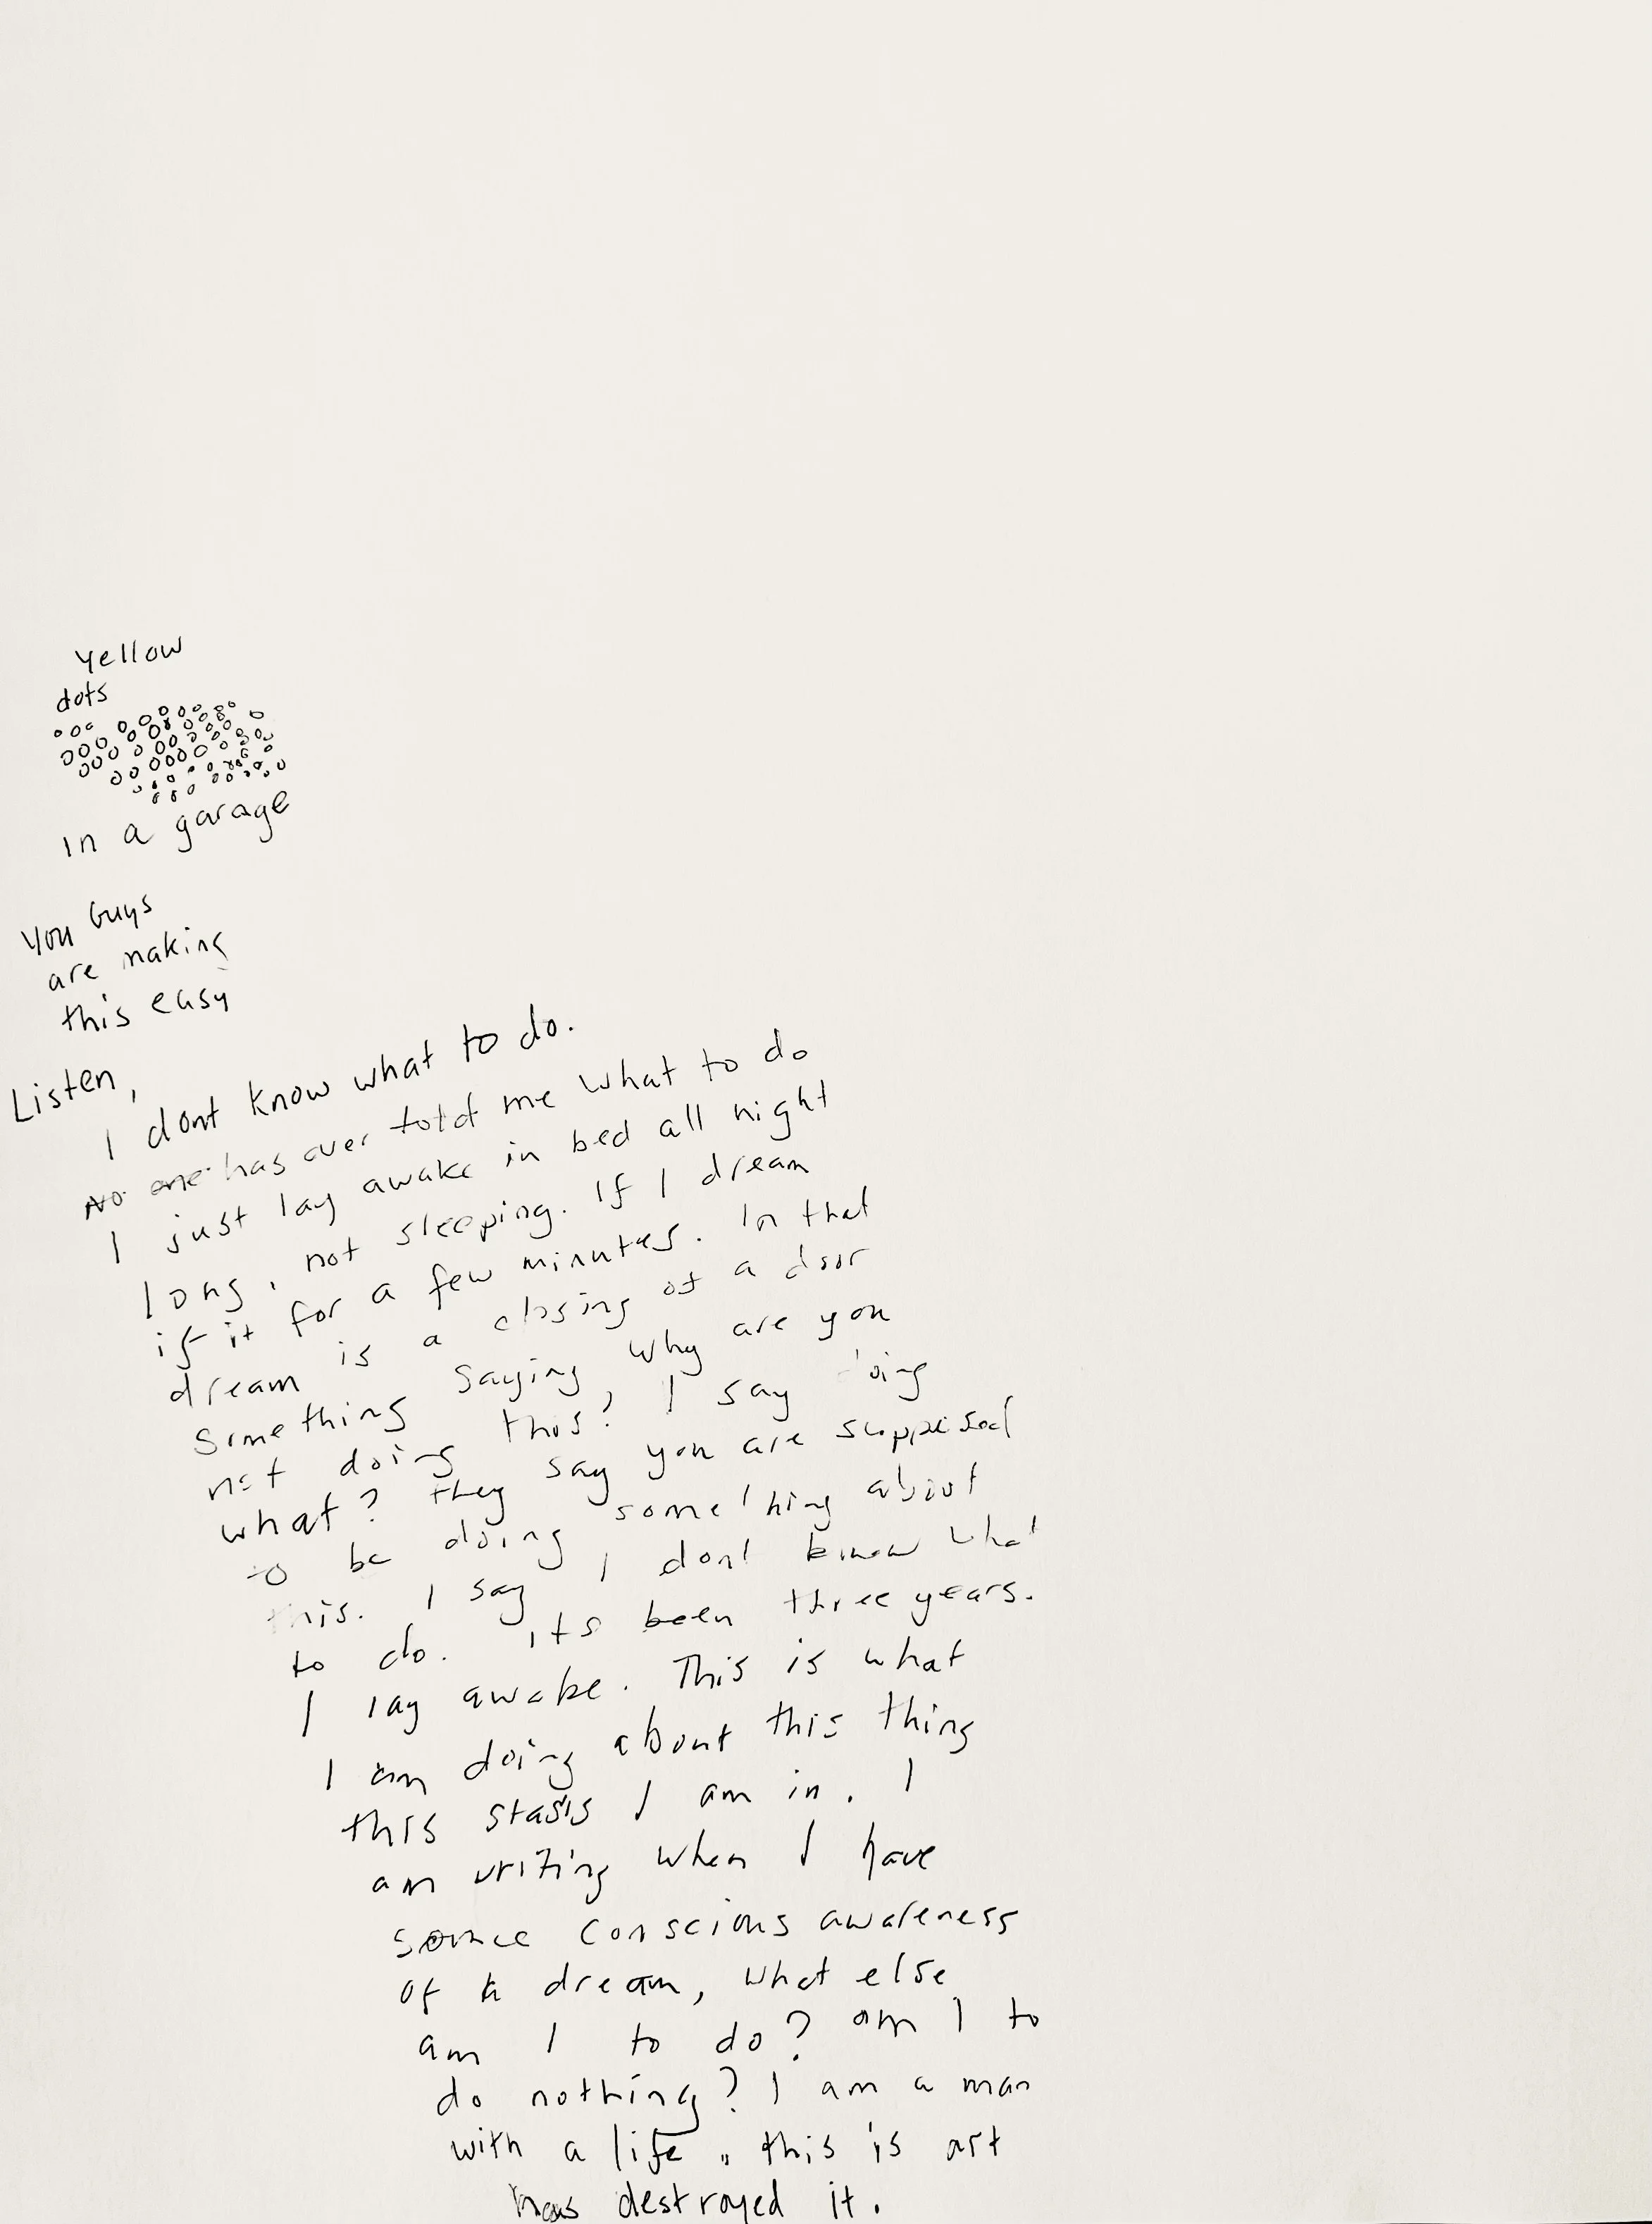 yellow
dots
in a garage
you Guys
are making
this easy
Listen,
I dont know what to do.
No one has ever told me what to do
I just lay awake in bed all night
long, not sleeping. If I dream
if it for a few minutes. In that
dream is a closing of a door
something saying why are you
not doing this? I say doing
what? they say you are supposed
to be doing something about
this. I say I dont know what
to do. its been three years.
I lay awake. This is what
I am doing about this thing
this stasis I am in. I
am writing when I have
some conscious awareness
of a dream, what else
am I to do? am I to
do nothing? I am a man
with a life. this is art
has destroyed it.